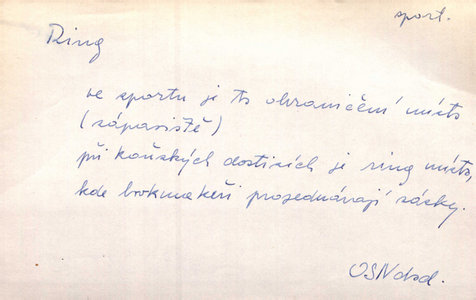 sport.
Ring
ve sportu je to ohraničení místo
(zápasiště)
při koňských dostizích je ring místo,
kde brokmakeři projednávají sázky.
OSNdod.